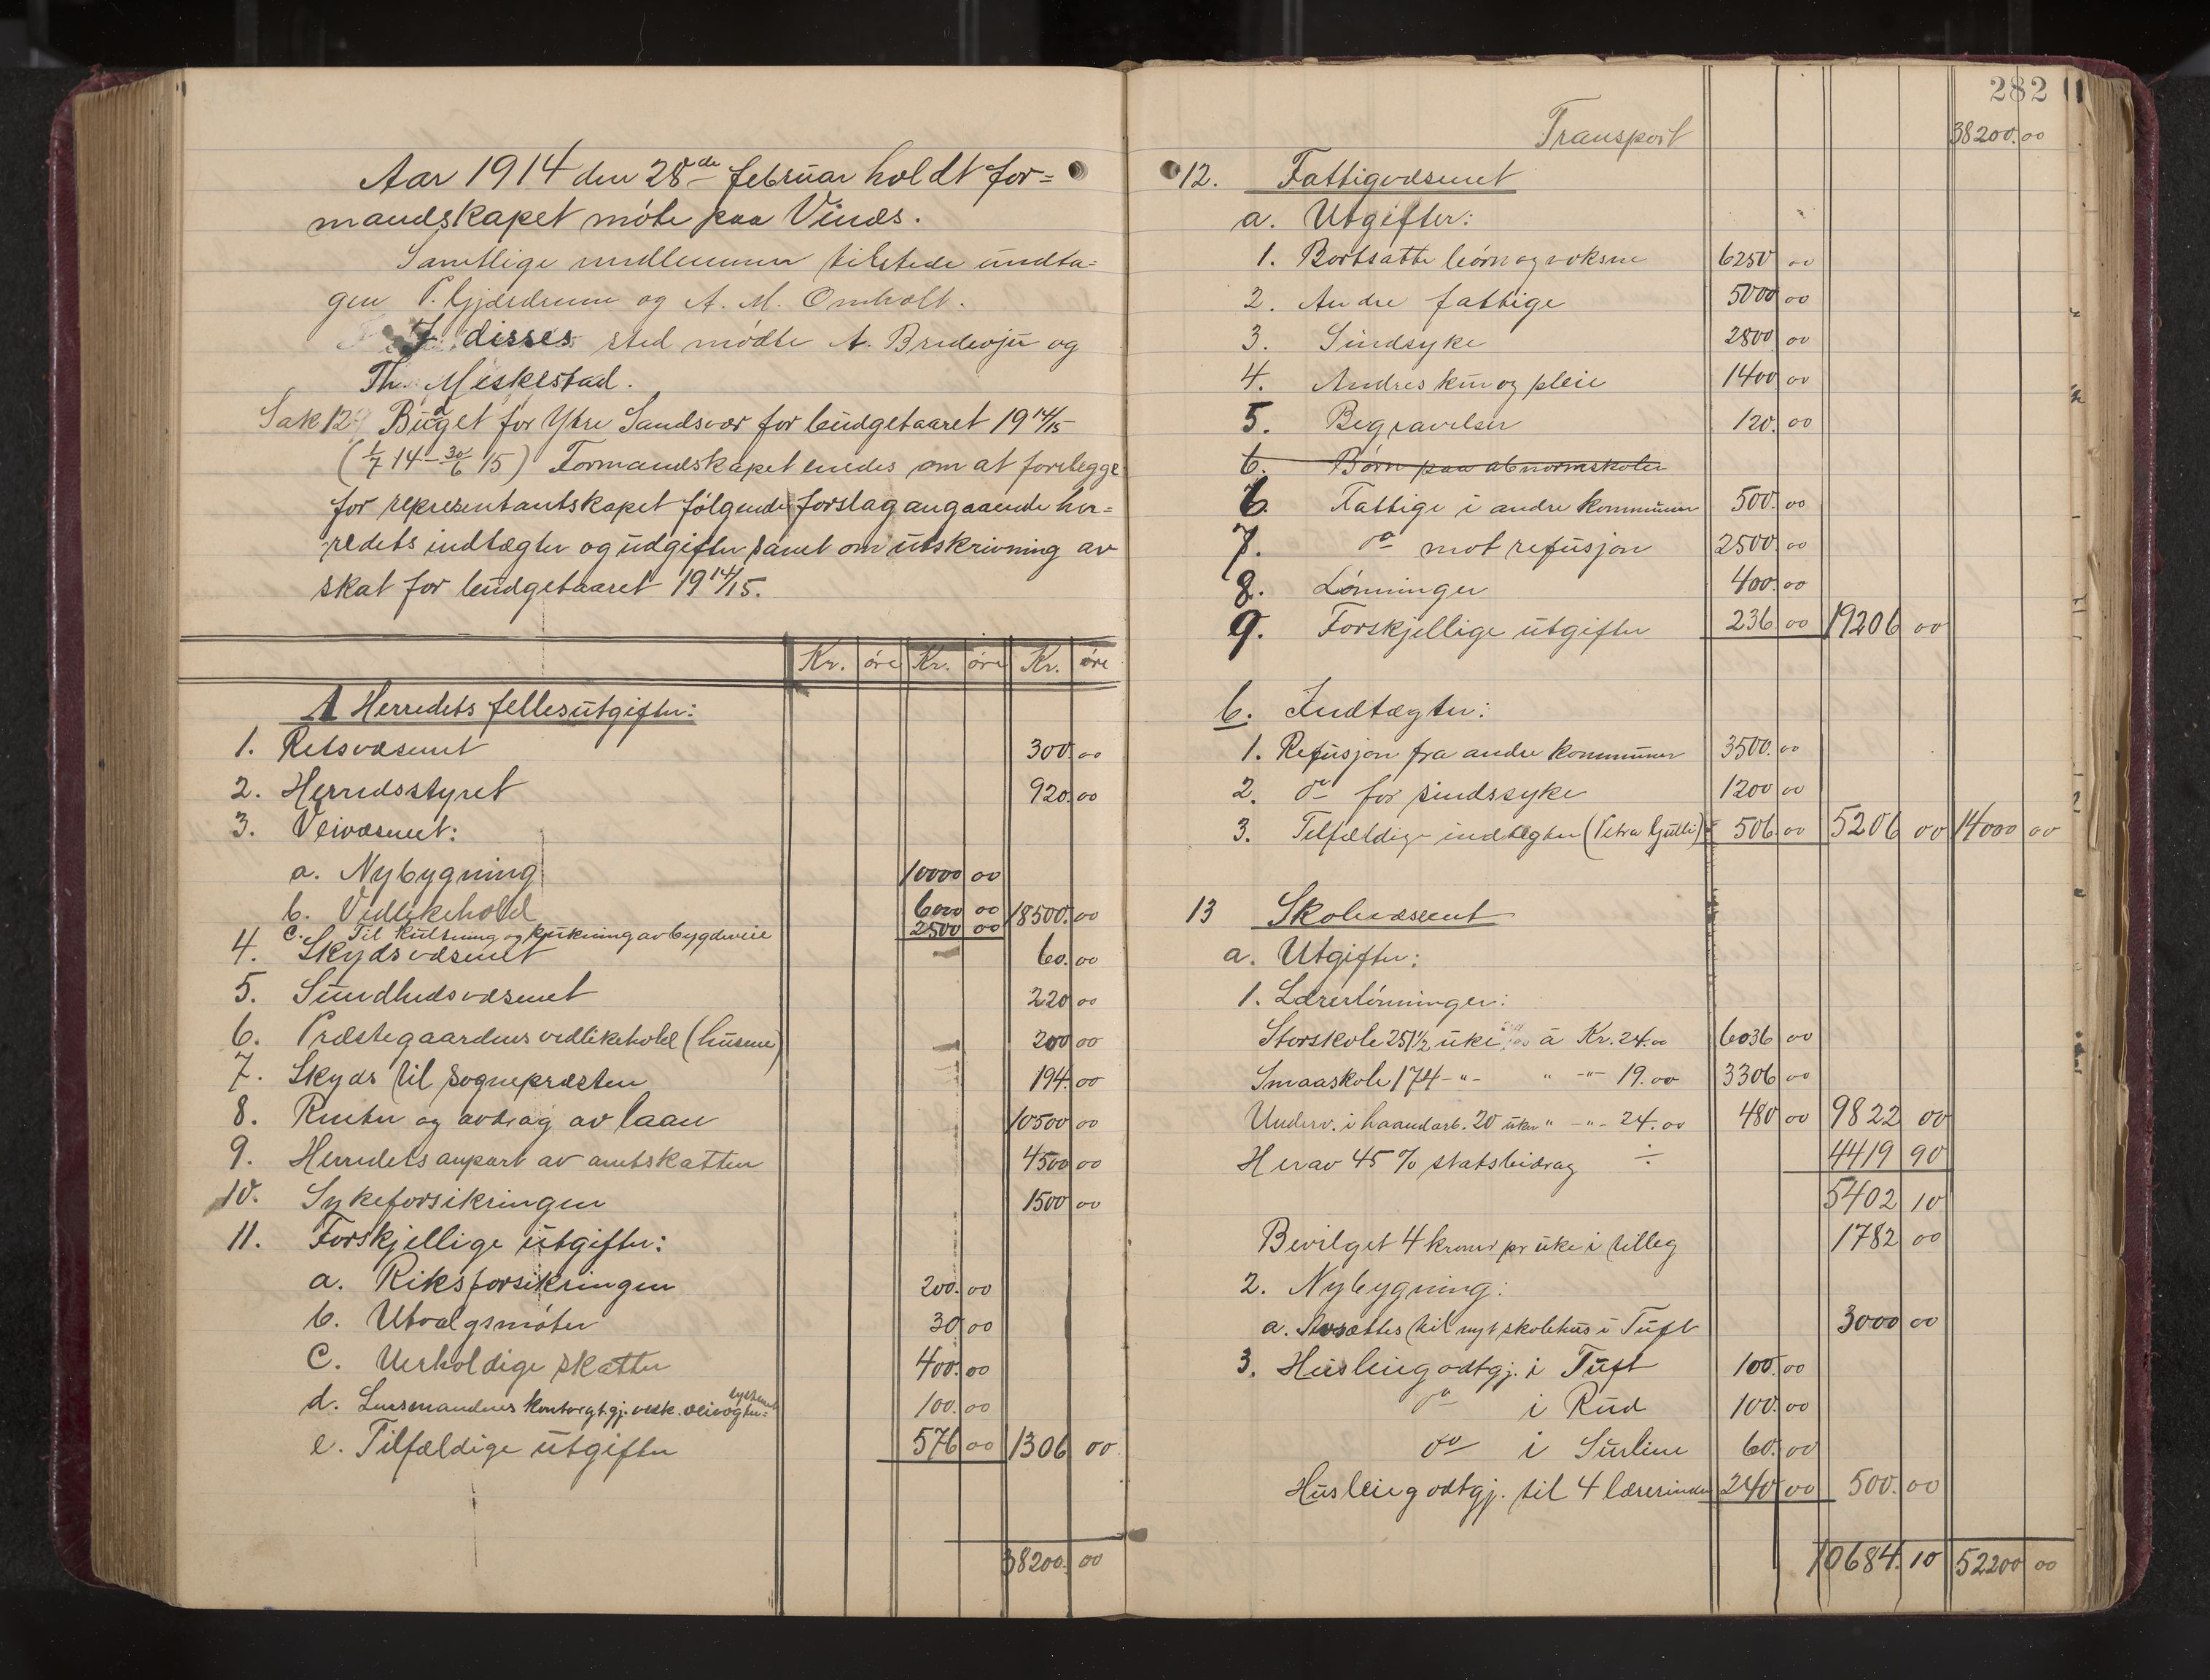 Aar 1914 den 28de februar holdt for=
mandskapet møte paa Vinæs.
Samtlige medlemmer tilstede undta=
gen P. Gjærdrum og A. M. Omholt.
I disses sted mødte A. Bredevju og
Th. Meskestad.
Sak 12. Budget for Ytre Sandsvær for budgetaaret 1914/15
(1/7 14 - 30/6 15) Formandskapet enedes om at forelegge
for representantskapet følgende forslag angaaende her=
redets indtægter og udgifter samt om utskrivning av
skat for budgetaaret 1914/15.
Kr. øre Kr. øre Kr. øre
A Herredets fellesutgifter:
1. Retsvæsenet 300.00
2. Herredsstyret 920.00
3. Veivæsenet:
a. Nybygning 10000 00
b. Vedlikehold 6000 00 18500.00
c. Til kultning og av bygdeveie 2500 00
4. Skydsvæsenet 60.00
5. Sundhedsvæsenet 220 00
6. Præstegaardens vedlikehold (husene) 200 00
7. Skyds til sognepræsten 194.00
8. Renter og avdrag av laan 10500 00
9. Herredets anpart av amtskatten 4500 00
10. Sykeforsikringen 1500 00
11. Forskjellige utgifter:
a. Riksforsikringen 200.00
b. Utvalgsmøter 30 00
c. Uerholdige skatter 400.00
d. Lensmandens kontorgt.gj. vedk. 100.00
e. Tilfældige utgifter 576 00 1306 00
38200.00
282
Transport 38200.00
12. Fattigvæsenet
a. Utgifter:
1. Bortsatte børn og voksne 6250 00
2. Andre fattige 5000 00
3. Sindsyke 2800 00
4. Andres kur og pleie 1400 00
5. Begravelser 120.00
6. Børn paa abnormskoler
6. Fattige i andre kommuner 500.00
7. do mot refusjon 2500.00
8. Lønninger 400.00
9. Forskjellige utgifter 236 00 19206 00
b. Indtægter:
1. Refusjon fra andre kommuner 3500.00
2. do for sindssyke 1200 00
3. Tilfældige indtegter (Petra Gutti) 506.00 5206 00 14000 00
13 Skolevæsenet
a. Utgifter:
1. Lærerlønninger:
Storskole 251½ uke à Kr. 24.00 6036 00
Smaaskole 174 -"- " -"- 19.00 3306 00
Underv. i haandarb. 20 uker " -"- 24.00 480 00 9822 00
Herav 45 % statsbidrag ÷ 4419 90
5402 10
Bevilget 4 kroner pr uke i tilleg 1782 00
2. Nybygning:
a. Avsættes til nyt skolehus i Tuft 3000 00
3. Husleiegodtgj. i Tuft 100.00
do i Rud 100.00
do i Surlien 60.00
Husleiegodtgj. til 4 lærerinder 240 00 500.00
10684.10 52200 00